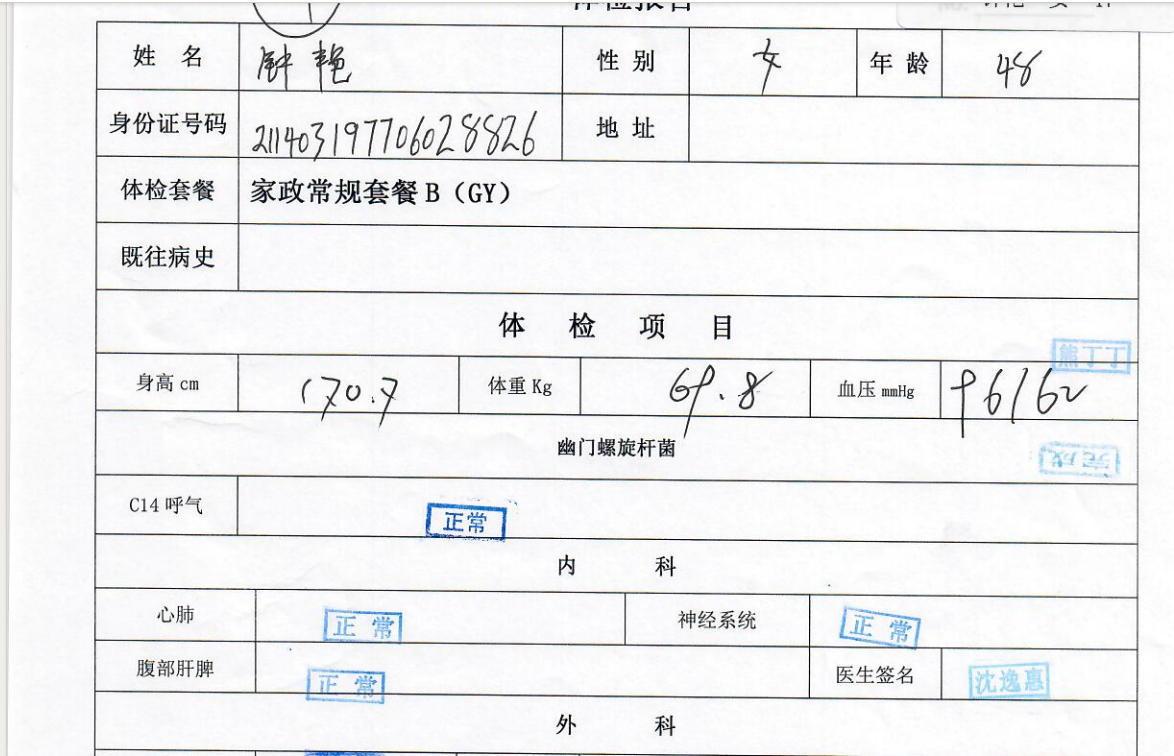 体检报告
姓 名 钟艳 性 别 女 年 龄 48
身份证号码 211403197706028826 地 址
体检套餐 家政常规套餐 B（GY）
既往病史
体 检 项 目
熊丁丁
身高 cm 170.7 体重 Kg 69.8 血压 mmHg 96/62
幽门螺旋杆菌
完成
C14 呼气 正常
内 科
心肺 正 常 神经系统 正 常
腹部肝脾 正 常 医生签名 沈逸惠
外 科